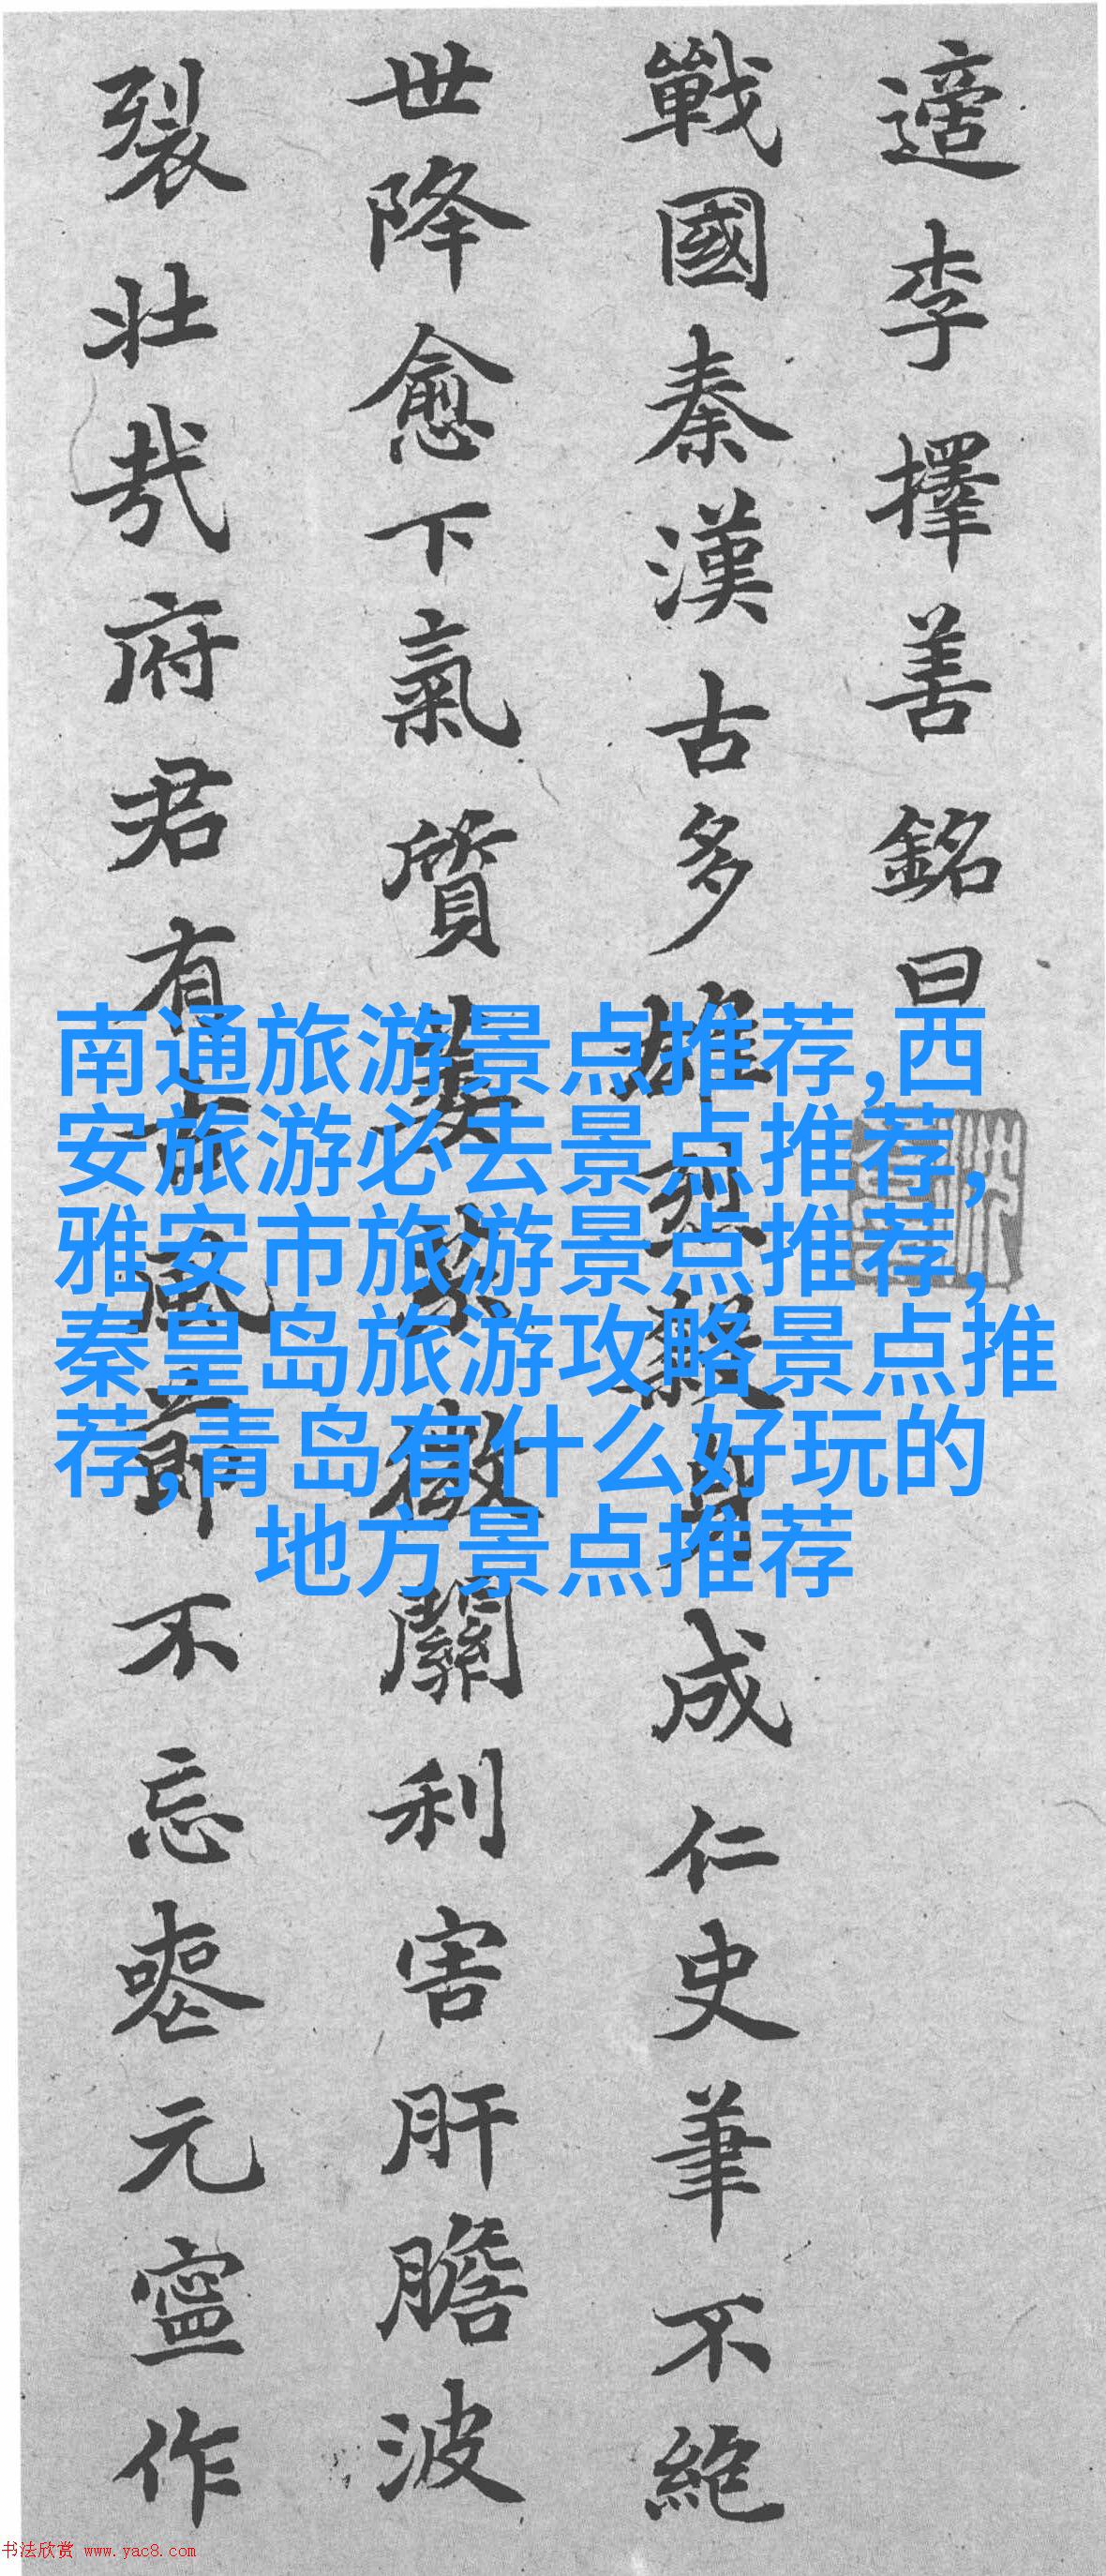 適李擇善銘曰
戰國秦漢古多雄烈殺身成仁史筆不絶
世降愈下氣質萎荼徼關利害肝膽波
裂壯哉府君有古風節不忘喪元寧作
南通旅游景点推荐,西
安旅游必去景点推荐,
雅安市旅游景点推荐,
秦皇岛旅游攻略景点推
荐,青岛有什么好玩的
地方景点推荐
书法欣赏 www.yac8.com